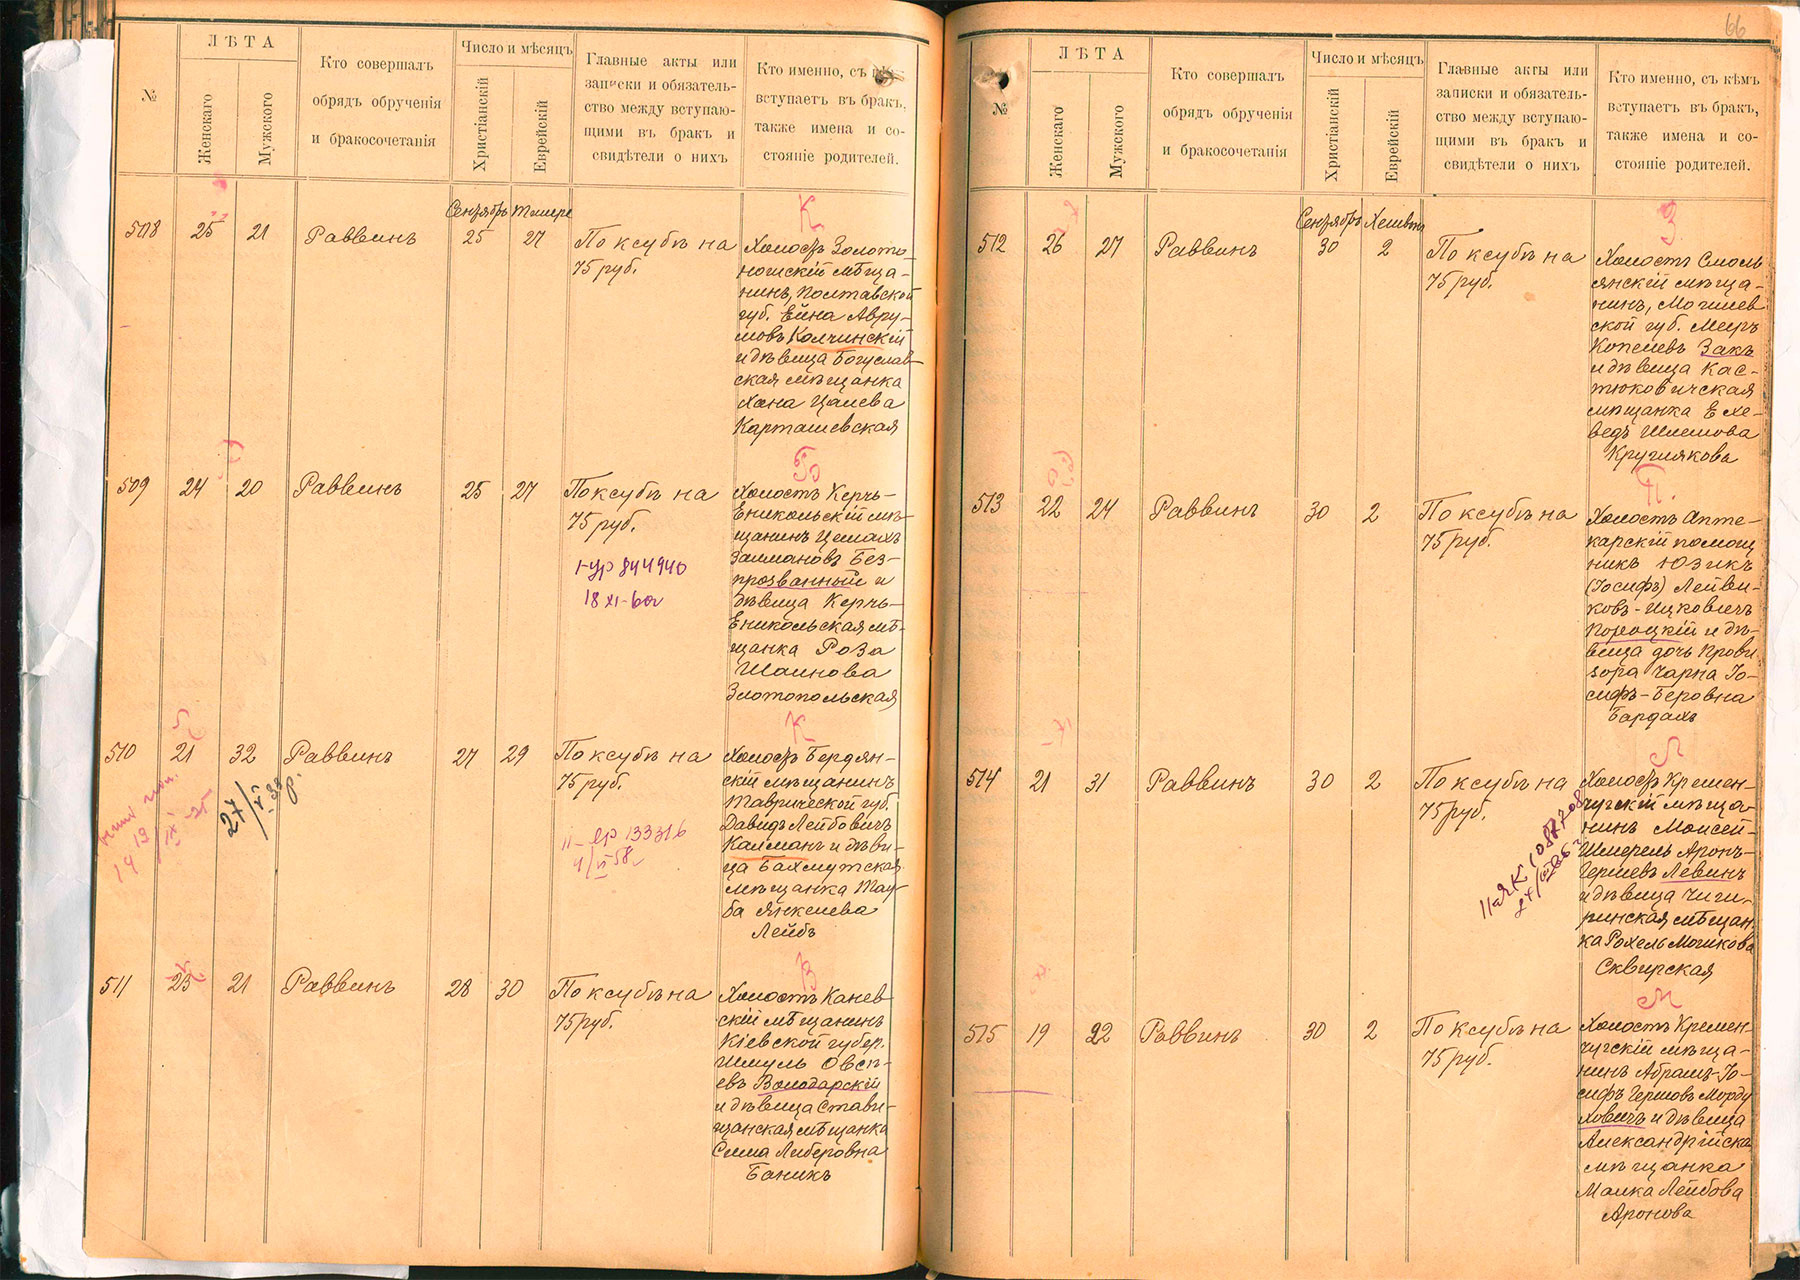 66
№
ЛѢТА
Женскаго
Мужского
Кто совершалъ
обрядъ обрученія
и бракосочетанія
Число и мѣсяцъ
Христіанскій
Еврейскій
Главные акты или
записки и обязатель-
ство между вступаю-
щими въ бракъ и
свидѣтели о нихъ
Кто именно, съ кѣмъ
вступаетъ въ бракъ,
также имена и со-
стояніе родителей.
Сентябрь Тишри
К
508 25 21 Раввинъ 25 27 По ксубѣ на
75 руб.
Холостъ Золото
ношскій мѣща-
нинъ, Полтавской
губ. Ейна Авру-
мовъ Колчинскій
и дѣвица Богуслав-
ская мѣщанка
Хана Цалева
Карташевская
Б
509 24 20 Раввинъ 25 27 По ксубѣ на
75 руб.
844940
18 XI-60г
Холостъ Керчь-
Еникольскій мѣ-
щанинъ Цемахъ
Залмановъ Без-
прозванный и
дѣвица Керчь-
Еникольская мѣ-
щанка Роза
Шаинова
Златопольская
К
510 21 32 Раввинъ 27 29 По ксубѣ на
75 руб.
27/V 33 р.
133316
Холостъ Бердян-
скій мѣщанинъ
Таврической губ.
Давидъ Лейбовичъ
Калманъ и дѣви-
ца Бахмутская
мѣщанка Тау-
ба Янкелева
Лейбъ
В
511 23 21 Раввинъ 28 30 По ксубѣ на
75 руб.
Холостъ Канев
скій мѣщанинъ
Кіевской губер.
Шмуль Овсѣ-
евъ Володарскій
и дѣвица Стави-
щанская мѣщанка
Сима Либеровна
Баникъ
№
ЛѢТА
Женскаго
Мужского
Кто совершалъ
обрядъ обрученія
и бракосочетанія
Число и мѣсяцъ
Христіанскій
Еврейскій
Главные акты или
записки и обязатель-
ство между вступаю-
щими въ бракъ и
свидѣтели о нихъ
Кто именно, съ кѣмъ
вступаетъ въ бракъ,
также имена и со-
стояніе родителей.
Сентябрь Хешвонъ
З
512 26 27 Раввинъ 30 2 По ксубѣ на
75 руб.
Холостъ Смоль
янскій мѣща-
нинъ, Могилев
ской губ. Мееръ
Копелевъ Закъ
и дѣвица Кас-
тюковичская
мѣщанка Ехе-
ведъ Шлемова
Круглякова
П.
513 22 24 Раввинъ 30 2 По ксубѣ на
75 руб.
Холостъ Апте-
карскій помощ
никъ Юзикъ
(Іосифъ) Лейви-
ковъ-Ицковичъ
Полоцкій и дѣ-
вица дочь Прови
зора Чарна Іо-
сифъ-Беровна
Бардахъ
Л
514 21 31 Раввинъ 30 2 По ксубѣ на
75 руб.
Холостъ Кремен-
чугскій мѣща-
нинъ Моисей-
Шмерель Аронъ-
Гершевъ Левинъ
и дѣвица Чиги-
ринская мѣщан-
ка Рохель Мошкова
Сквирская
М
515 19 22 Раввинъ 30 2 По ксубѣ на
75 руб.
Холостъ Кремен-
чугскій мѣща-
нинъ Абрамъ-Іо-
сифъ Гершовъ Морду
ховичъ и дѣвица
Александрійска
мѣщанка
Малка Лейбова
Аронова